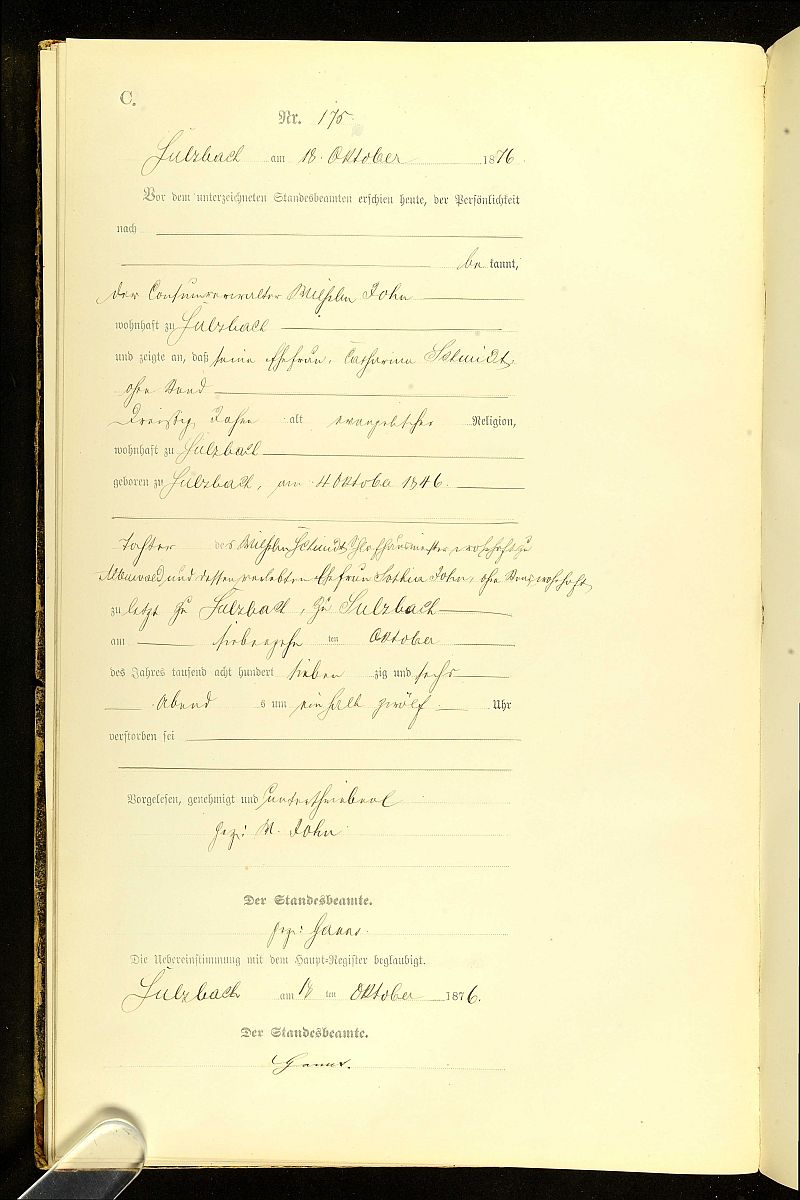 C.
Nr. 175.
Sulzbach am 18. Oktober 1876.
Vor dem unterzeichneten Standesbeamten erschien heute, der Persönlichkeit
nach
be kannt,
der Consumverwalter Wilhelm John
wohnhaft zu Sulzbach
und zeigte an, daß seine Ehefrau, Catharina Schmidt,
ohne Stand
Dreissig Jahre alt evangelischer Religion,
wohnhaft zu Sulzbach
geboren zu Sulzbach, am 4 Oktober 1846.
Tochter des Wilhelm Schmidt wohnhaft zu
und dessen verlebten Ehefrau John, ohne Stand, wohnhaft
zu letzt zu Sulzbach, zu Sulzbach
am siebenzehn ten Oktober
des Jahres tausend acht hundert sieben zig und sechs
Abend s um ein halb zwölf Uhr
verstorben sei
Vorgelesen, genehmigt und unterschrieben
gez: W. John
Der Standesbeamte.
gez:
Die Uebereinstimmung mit dem Haupt-Register beglaubigt.
Sulzbach am 18 ten Oktober 1876.
Der Standesbeamte.